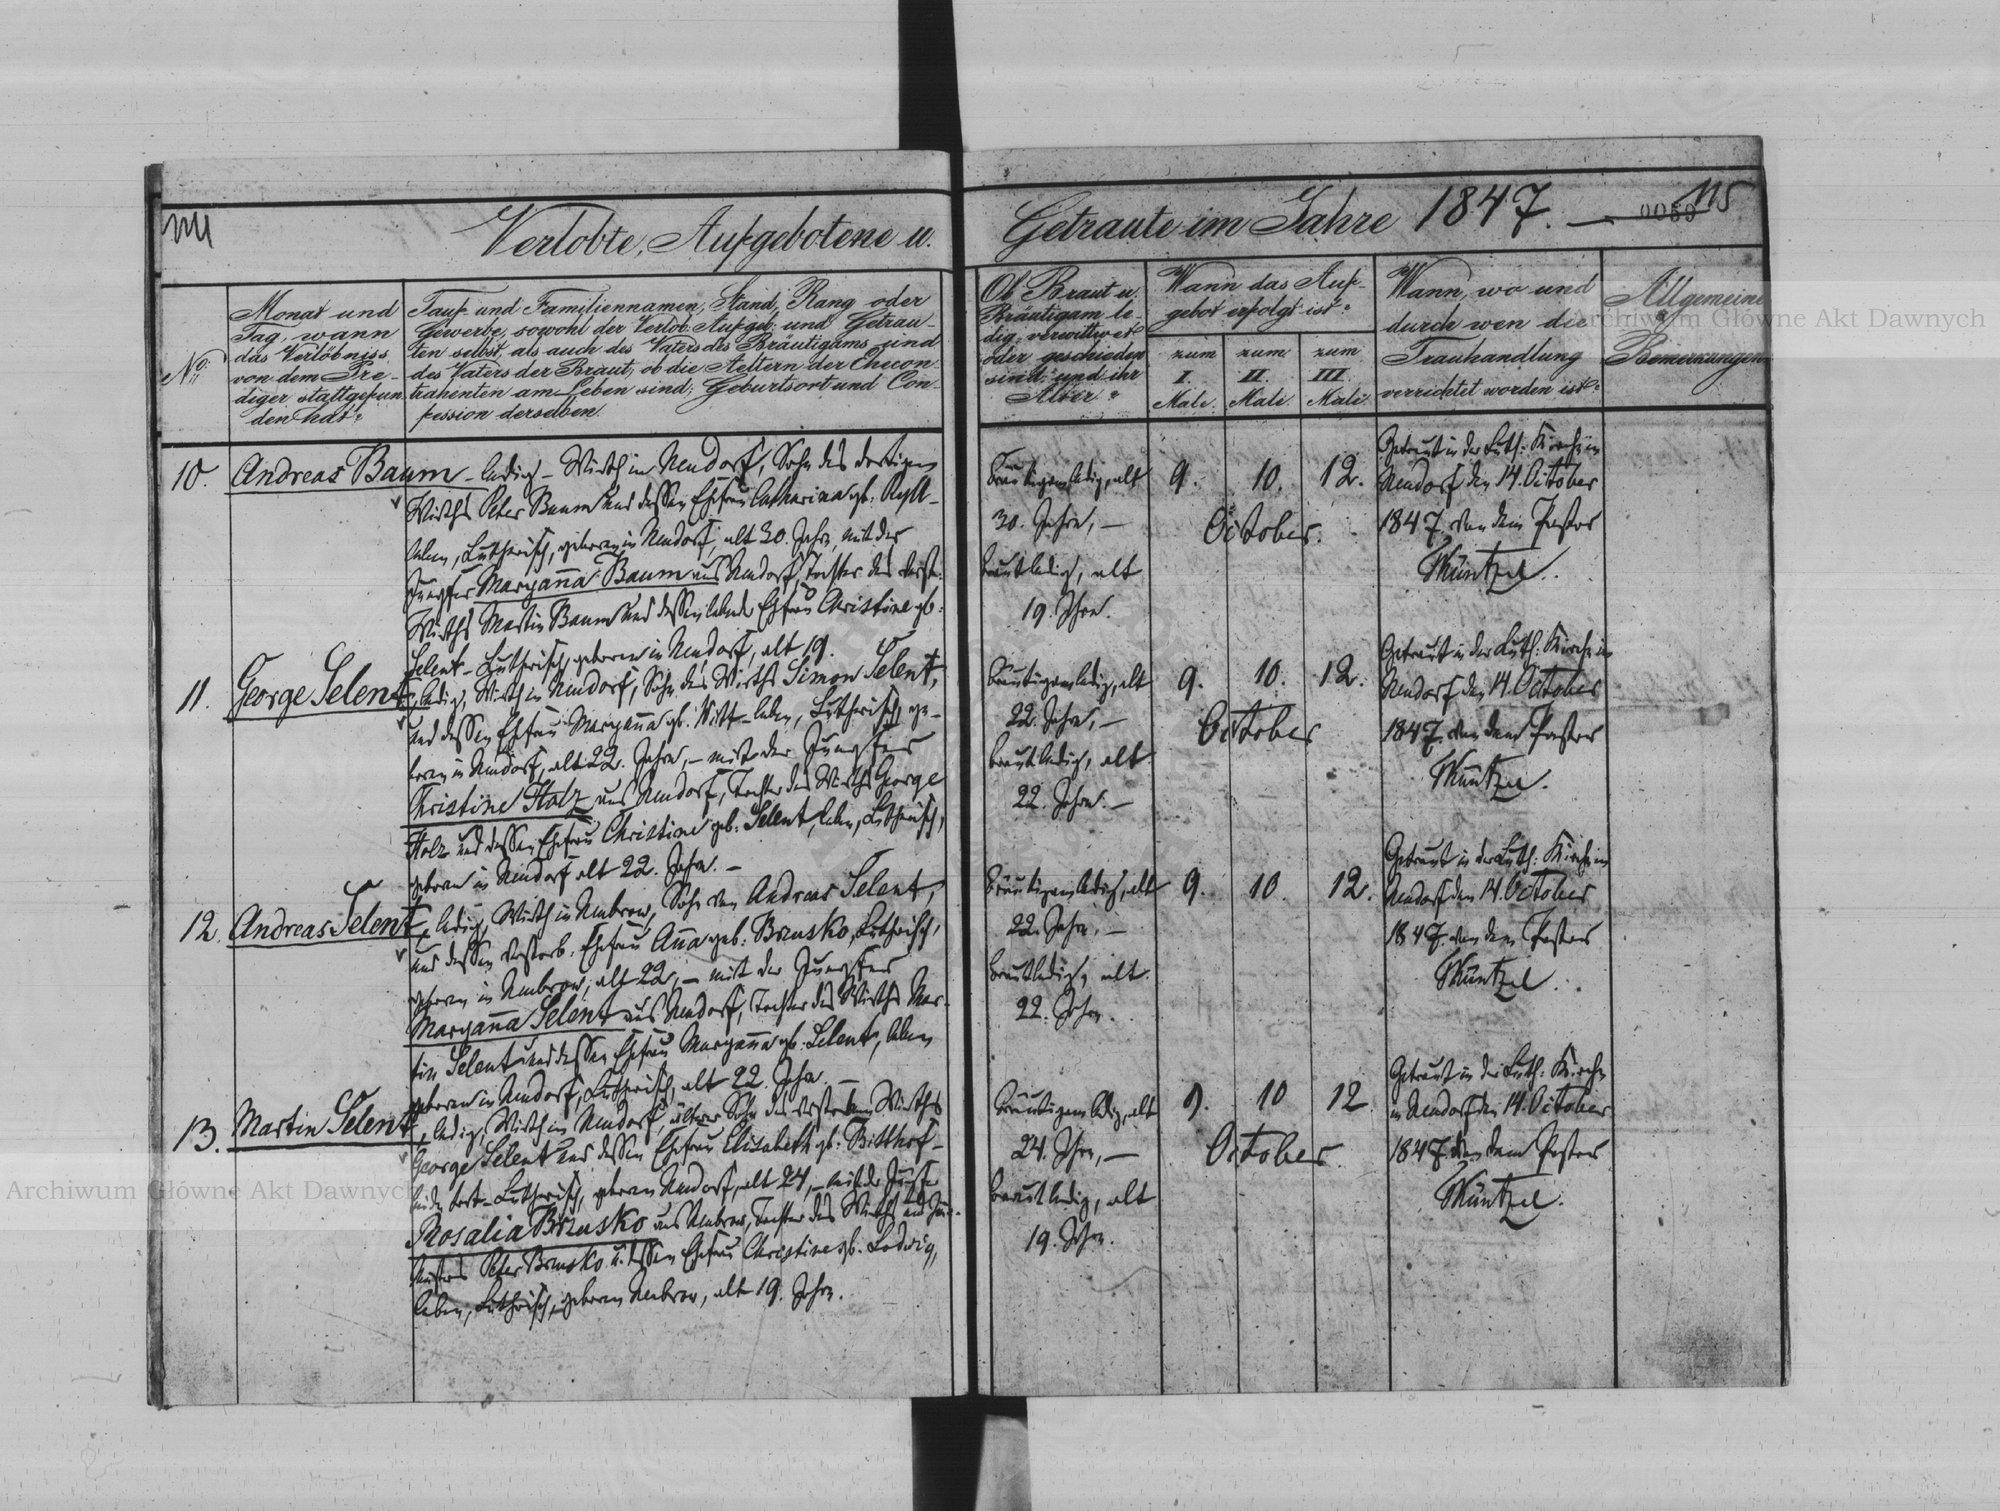 Verlobte, Aufgebotene u. Getraute im Jahre 1847. — 115
0059
No:
Monat und
Tag, wann
das Verlöbniss
von dem Pre-
diger stattgefun
den hat?
Tauf und Familiennamen, Stand, Rang oder
Gewerbe, sowohl der Verlob. Aufgeb. und Getrau-
ten selbst, als auch des Vaters des Bräutigams und
des Vaters der Braut, ob die Aeltern der Checon-
trahenten am Leben sind; Geburtsort und Con-
fession derselben.
Ob Braut u.
Bräutigam le-
dig, verwittwet
oder geschieden
sind, und ihr
Alter?
Wann das Auf-
gebot erfolgt ist?
zum
I.
Male.
zum
II.
Male.
zum
III.
Male.
Wann, wo und
durch wen die
Trauhandlung
verrichtet worden ist?
Allgemeine
Bemerkungen
10. Andreas Baum - ledig - Wirth in Neudorf, Sohn des dortigen
Wirths Peter Baum und dessen Ehefrau Catharina gb:
leben, Lutherisch, geboren in Neudorf, alt 30. Jahre, mit der
Jungfer Maryanna Baum aus Neudorf, Tochter des verst:
Wirths Martin Baum und dessen lebende Ehefrau Christine gb:
Selent - Lutherisch, geboren in Neudorf, alt 19.
Bräutigam ledig, alt
30. Jahre, —
Braut ledig, alt
19. Jhre.
9. 10. 12.
October.
Getraut in der Luth: Kirche in
Neudorf den 14. October
1847. von dem Pastor
Müntzel.
11. George Selent, ledig, Wirth in Neudorf, Sohn des Wirths Simon Selent,
und dessen Ehefrau Maryanna gb: Witt - leben, Lutherisch, ge-
boren in Neudorf, alt 22. Jahre, - mit der Jungfer
Christine Holz aus Neudorf, Tochter des Wirths George
Holz und dessen Ehefrau Christine geb: Selent, leben, Lutherisch,
geboren in Neudorf alt 22. Jahre. -
Bräutigam ledig, alt
22. Jahre, —
Braut ledig, alt
22. Jahre. —
9. 10. 12.
October
Getraut in der Luth: Kirche in
Neudorf den 14. October
1847. von dem Pastor
Müntzel.
12. Andreas Selent, ledig, Wirth in Neubrow, Sohn von Andreas Selent,
und dessen verstorb. Ehefrau Anna geb: Brzusko, Lutherisch,
geboren in Neubrow, alt 22, - mit der Jungfer
Maryanna Selent aus Neudorf, Tochter des Wirths Mar-
tin Selent und dessen Ehefrau Maryanna gb: Selent, leben
geboren in Neudorf, Lutherisch, alt 22. Jahre.
Bräutigam ledig, alt
22. Jahre, —
Braut ledig, alt
22. Jahre.
9. 10. 12.
Getraut in der Luth: Kirche in
Neudorf den 14. October
1847. von dem Pastor
Müntzel.
13. Martin Selent, ledig, Wirth in Neudorf, Sohn des verstorbenen Wirths
George Selent und dessen Ehefrau Elisabeth gb:
beide todt - Lutherisch, geboren Neudorf, alt 24, - mit der
Rosalia Brzusko aus Neubrow, Tochter des Wirths und
Peter Brzusko u. dessen Ehefrau Christine gb. Ludwig,
leben, Lutherisch, geboren Neubrow, alt 19. Jahre.
Bräutigam ledig, alt
24. Jhre, —
Braut ledig, alt
19. Jahre.
9. 10 12
October
Getraut in der Luth: Kirche
in Neudorf den 14. October
1847. von dem Pastor
Müntzel.
Archiwum Główne Akt Dawnych
Archiwum Główne Akt Dawnych